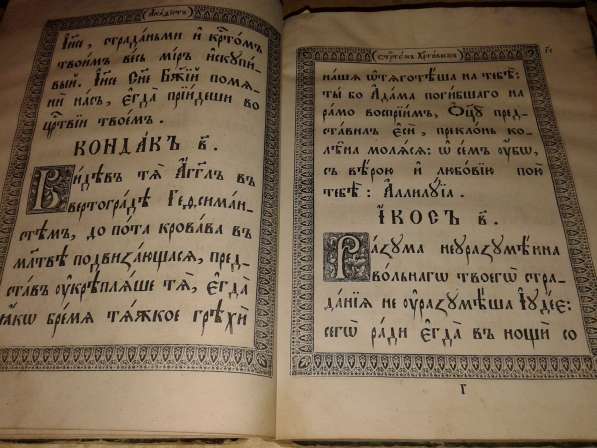 (Акаѳістъ)
І҆и҃се, страданьми и҆ крⷭ҇томъ
твоимъ ве́сь мі́ръ и҆скупи́-
вый. І҆и҃се Сн҃е Бж҃їй помѧ-
нѝ на́съ, є҆гда̀ прїи́деши во
црⷭ҇твїи твое́мъ.
КОНДА́КЪ в҃.
Ви́дѣвъ тѧ̀ А҆́гг҃лъ въ
вертогра́дѣ Геѳсима́н-
стѣмъ, до по́та крова́ва въ
мл҃твѣ подвиза́ющасѧ, пред-
ста́въ ᲂу҆крѣплѧ́ше тѧ̀, є҆гда̀
ꙗ҆́кѡ бре́мѧ тѧ́жкое грѣхѝ
(стрⷭ҇те́мъ Хрⷭ҇то́вымъ)
на́шѧ ѡ҆тѧготѣ́ша на тебѣ̀:
ты́ бо А҆да́ма поги́бшаго на
ра́мо воспрїи́мъ, Ѻ҆ц҃ꙋ̀ пред-
ста́вилъ є҆сѝ, прекло́нь ко-
лѣ́на молѧ́сѧ: ѡ҆ се́мъ ᲂу҆́бѡ,
съ вѣ́рою и҆ любо́вїю пою̀
тебѣ̀: А҆ллилꙋ́їа.
І҆́КОСЪ в҃.
Ра́зꙋма неꙋразꙋмѣ́нна
во́льнагѡ твоегѡ̀ стра-
да́нїѧ не ᲂу҆разꙋмѣ́ша І҆ꙋде́є:
сегѡ̀ ра́ди є҆гда̀ въ нощѝ со
Г